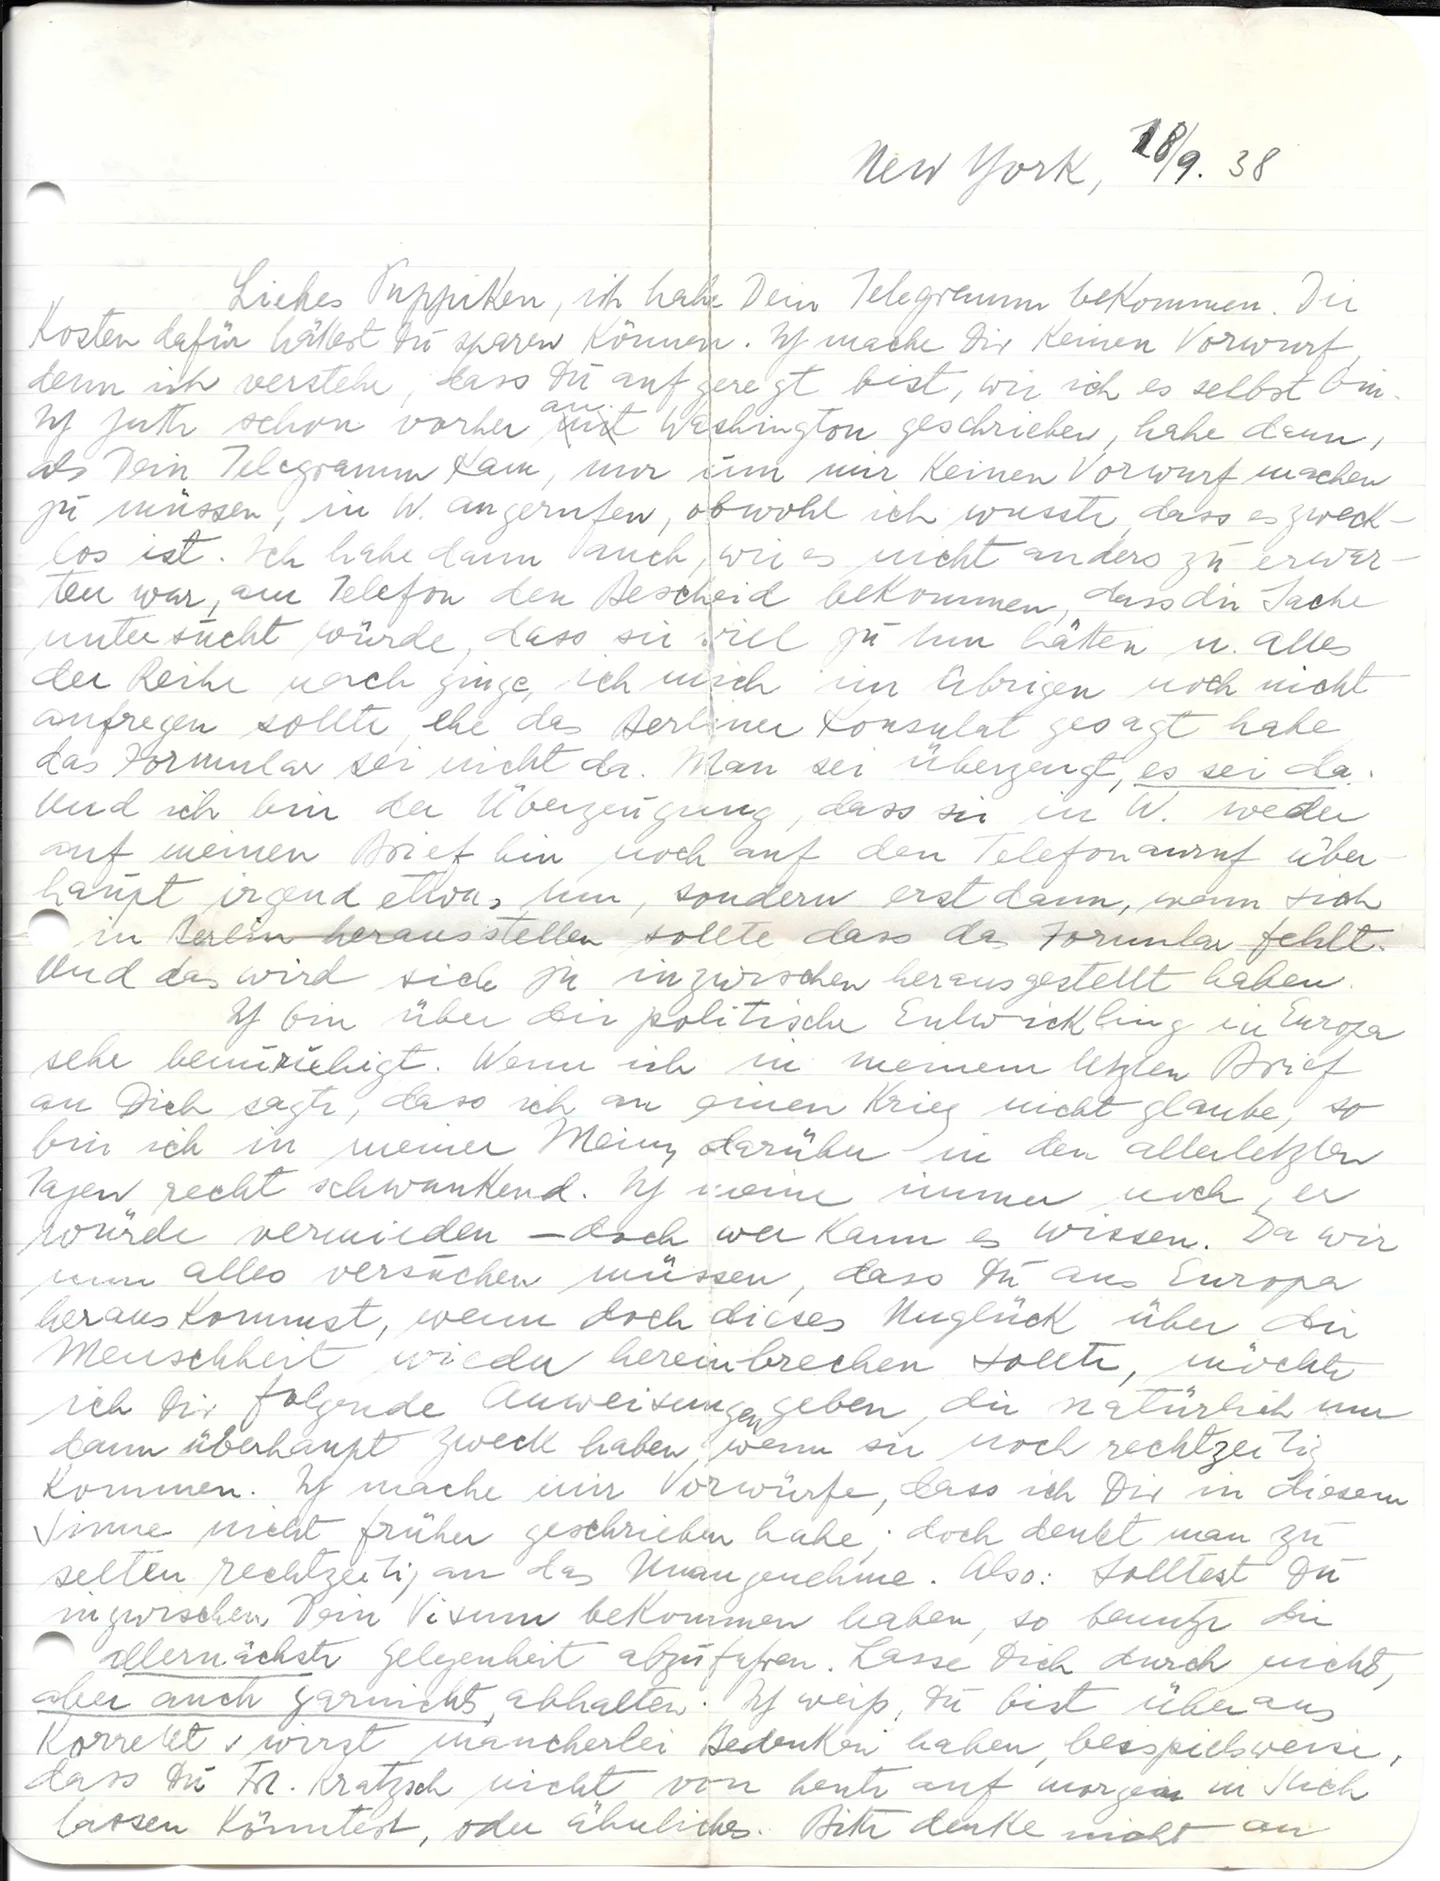 New York, 18/9. 38
Liebes Puppiken, ich habe Dein Telegramm bekommen. Die
Kosten dafür hättest Du sparen können. Ich mache Dir keinen Vorwurf,
denn ich verstehe, dass Du aufgeregt bist, wie ich es selbst bin.
Ich hatte schon vorher an Washington geschrieben, habe dann,
als Dein Telegramm kam, nur um mir keinen Vorwurf machen
zu müssen, in W. angerufen, obwohl ich wusste, dass es zweck-
los ist. Ich habe dann auch, wie es nicht anders zu erwar-
ten war, am Telefon den Bescheid bekommen, dass die Sache
untersucht würde, dass sie viel zu tun hätten u. alles
der Reihe nach ginge, ich mich im Übrigen noch nicht
aufregen sollte, ehe das Berliner Konsulat gesagt habe
das Formular sei nicht da. Man sei überzeugt, es sei da.
Und ich bin der Überzeugung, dass sie in W. weder
auf meinen Brief hin noch auf den Telefonanruf über-
haupt irgend etwas tun, sondern erst dann, wenn sich
in Berlin herausstellen sollte dass das Formular fehlt.
Und das wird sich ja inzwischen herausgestellt haben.
Ich bin über die politische Entwicklung in Europa
sehr beunruhigt. Wenn ich in meinem letzten Brief
an Dich sagte, dass ich an einen Krieg nicht glaube, so
bin ich in meiner Meing darüber in den allerletzten
Tagen recht schwankend. Ich meine immer noch, er
würde vermieden – doch wer kann es wissen. Da wir
nun alles versuchen müssen, dass Du aus Europa
herauskommst, wenn doch dieses Unglück über die
Menschheit wieder hereinbrechen sollte, möchte
ich Dir folgende Anweisungen geben, die natürlich nur
dann überhaupt Zweck haben, wenn sie noch rechtzeitig
kommen. Ich mache mir Vorwürfe, dass ich Dir in diesem
Sinne nicht früher geschrieben habe; doch denkt man zu
selten rechtzeitig an das Unangenehme. Also: Solltest Du
inzwischen Dein Visum bekommen haben, so benutze die
allernächste Gelegenheit abzufahren. Lasse Dich durch nichts,
aber auch garnichts, abhalten. Ich weiß, Du bist überaus
korrekt u wirst mancherlei Bedenken haben, beispielsweise,
dass Du Fr. Kratzsch nicht von heute auf morgen in Stich
lassen könntest, oder ähnliches. Bitte denke nicht an